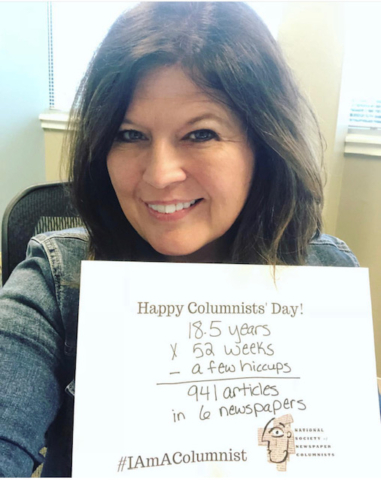 Happy Columnists' Day!
18.5 years
X 52 weeks
- a few hiccups
941 articles
in 6 newspapers
#IAmAColumnist
NATIONAL
SOCIETY of
NEWSPAPER
COLUMNISTS